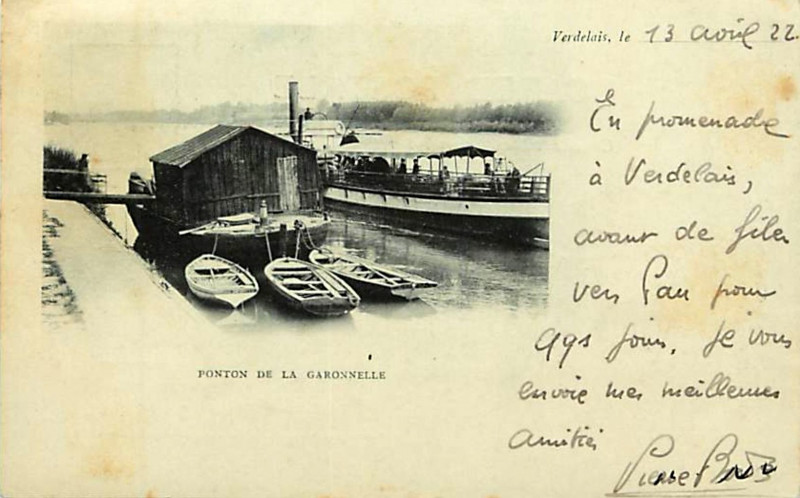 Verdelais, le 13 avril 22.
En promenade
à Verdelais,
avant de filer
vers Pau pour
qqs jours, je vous
envoie mes meilleures
amitiés
Pierre
PONTON DE LA GARONNELLE